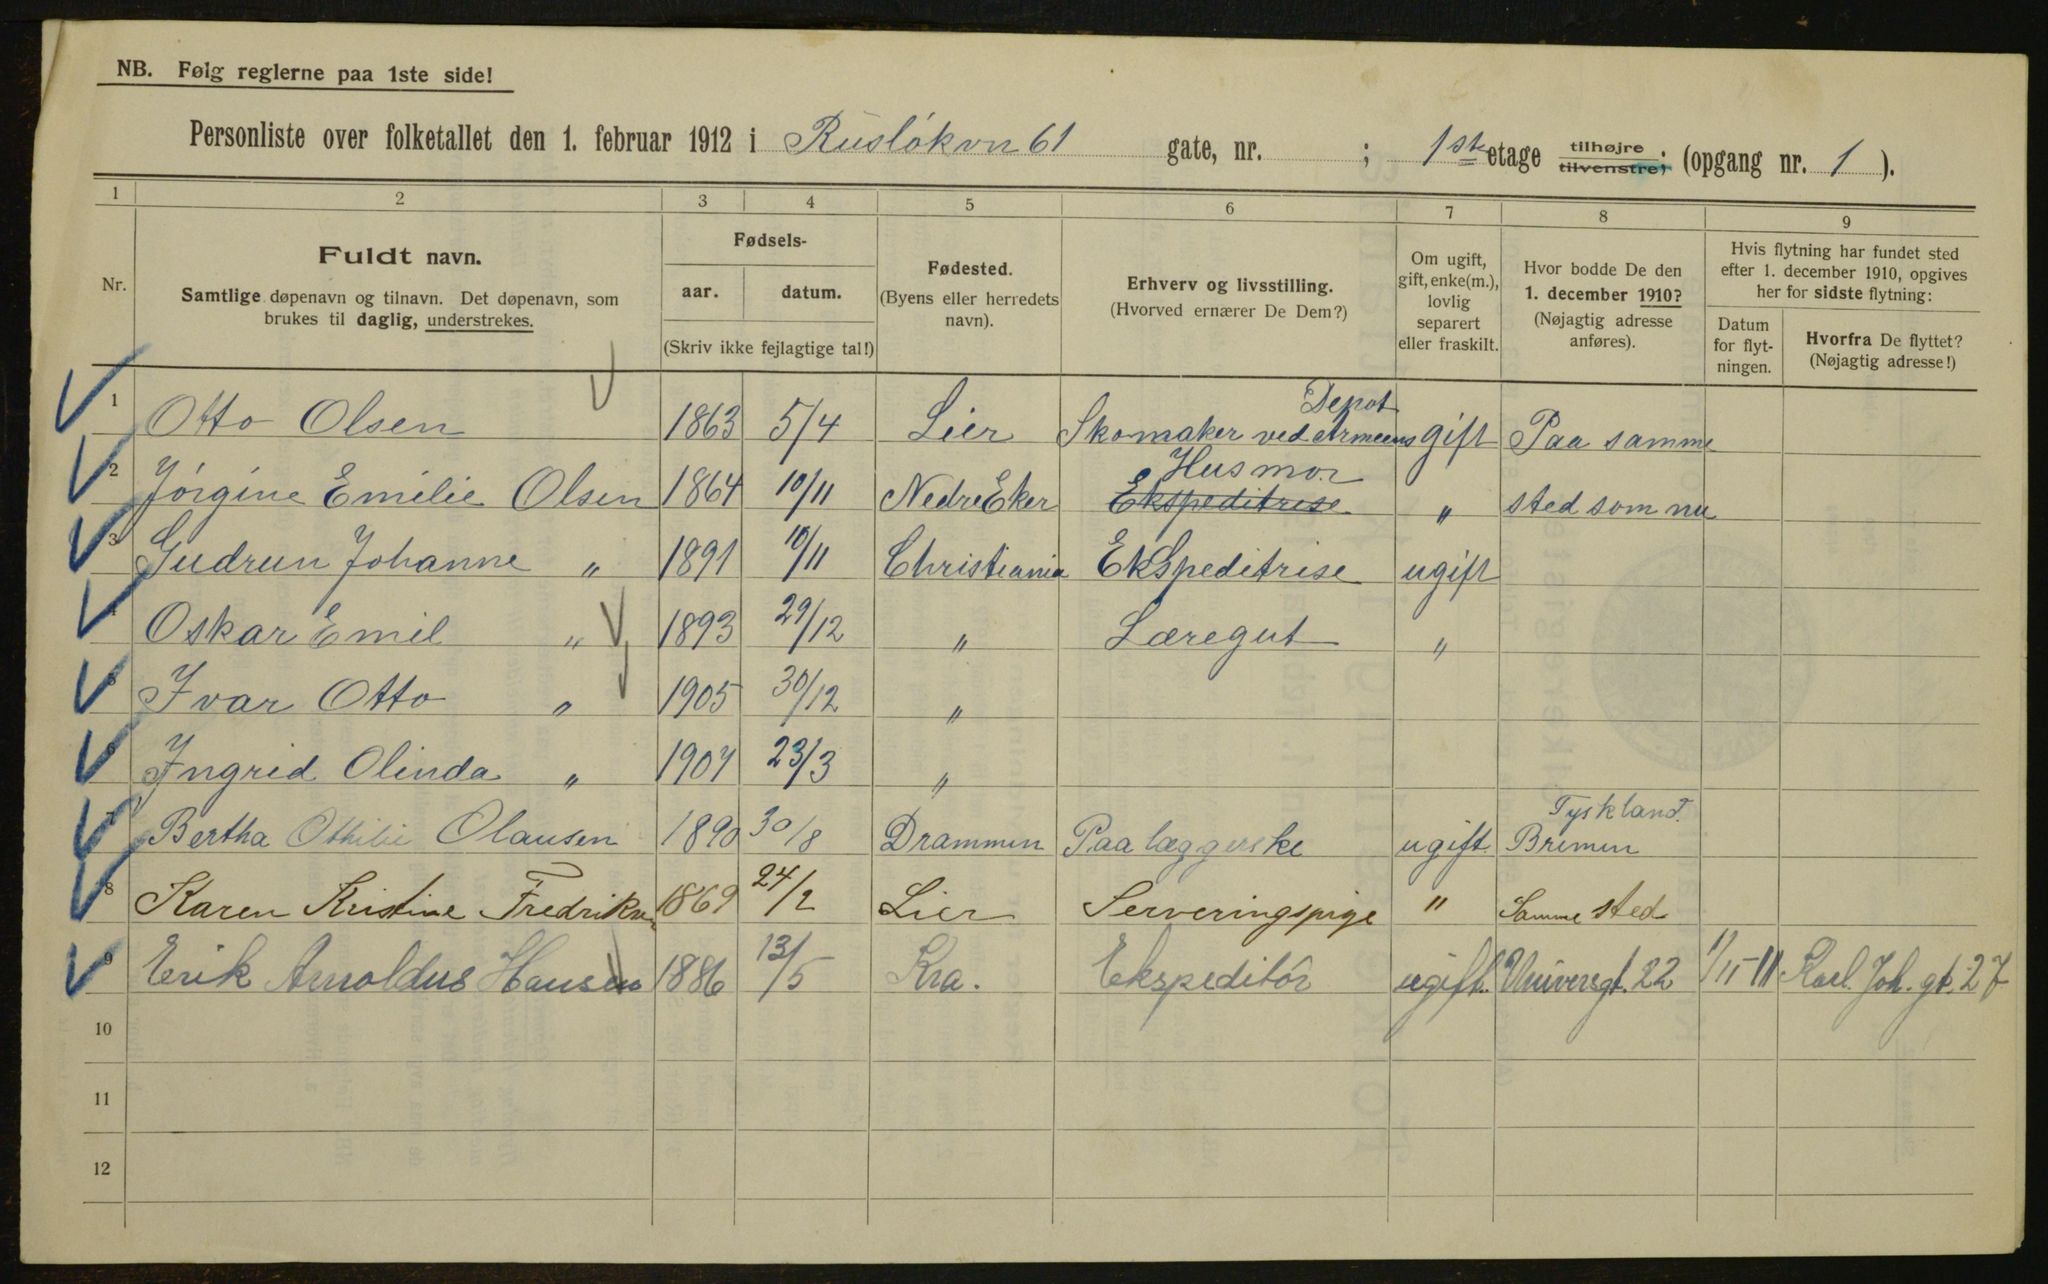 NB. Følg reglerne paa 1ste side!
Personliste over folketallet den 1. februar 1912 i Rusløkvn 61 gate, nr. ; 1ste etage tilhøjre tilvenstre; (opgang nr. 1 ).
1 2 3 4 5 6 7 8 9
Nr.
Fuldt navn.
Samtlige døpenavn og tilnavn. Det døpenavn, som
brukes til daglig, understrekes.
Fødsels-
aar. datum.
(Skriv ikke fejlagtige tal!)
Fødested.
(Byens eller herredets
navn).
Erhverv og livsstilling.
(Hvorved ernærer De Dem?)
Om ugift,
gift, enke(m.),
lovlig
separert
eller fraskilt.
Hvor bodde De den
1. december 1910?
(Nøjagtig adresse
anføres).
Hvis flytning har fundet sted
efter 1. december 1910, opgives
her for sidste flytning:
Datum
for flyt-
ningen.
Hvorfra De flyttet?
(Nøjagtig adresse!)
Depot
1 Otto Olsen 1863 5/4 Lier Skomaker ved Armeens gift Paa samme
Husmor
2 Jørgine Emilie Olsen 1864 10/11 Nedre Eker Ekspeditrise " sted som nu
3 Gudrun Johanne " 1891 10/11 Christiania Ekspeditrise ugift
4 Oskar Emil " 1893 29/12 " Læregut "
5 Ivar Otto " 1905 30/12 "
6 Ingrid Olinda " 1907 23/3 "
Tyskland.
7 Bertha Othilie Olausen 1890 30/8 Drammen Paalæggerske ugift Bremen
8 Karen Kristine Fredriksen 1869 24/2 Lier Serveringspige " Samme sted
9 Erik Arnoldus Hansen 1886 13/5 Kra. Ekspeditör ugift. Universgt. 22 1/11-11 Karl Joh. gt. 27
10
11
12